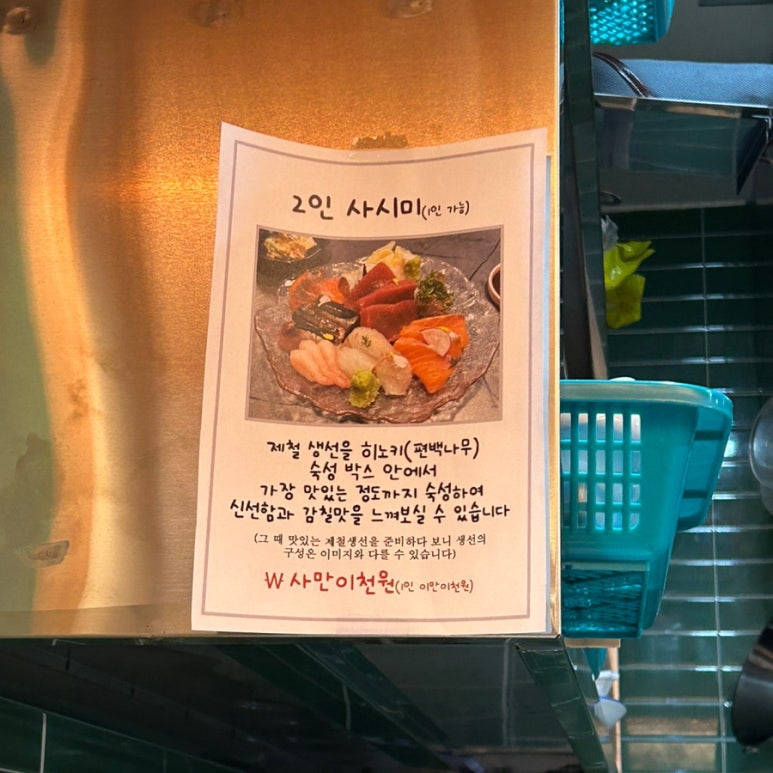 2인 사시미(1인 가능)
제철 생선을 히노키(편백나무)
숙성 박스 안에서
가장 맛있는 정도까지 숙성하여
신선함과 감칠맛을 느껴보실 수 있습니다
(그 때 맛있는 제철생선을 준비하다 보니 생선의
구성은 이미지와 다를 수 있습니다)
₩ 사만이천원(1인 이만이천원)